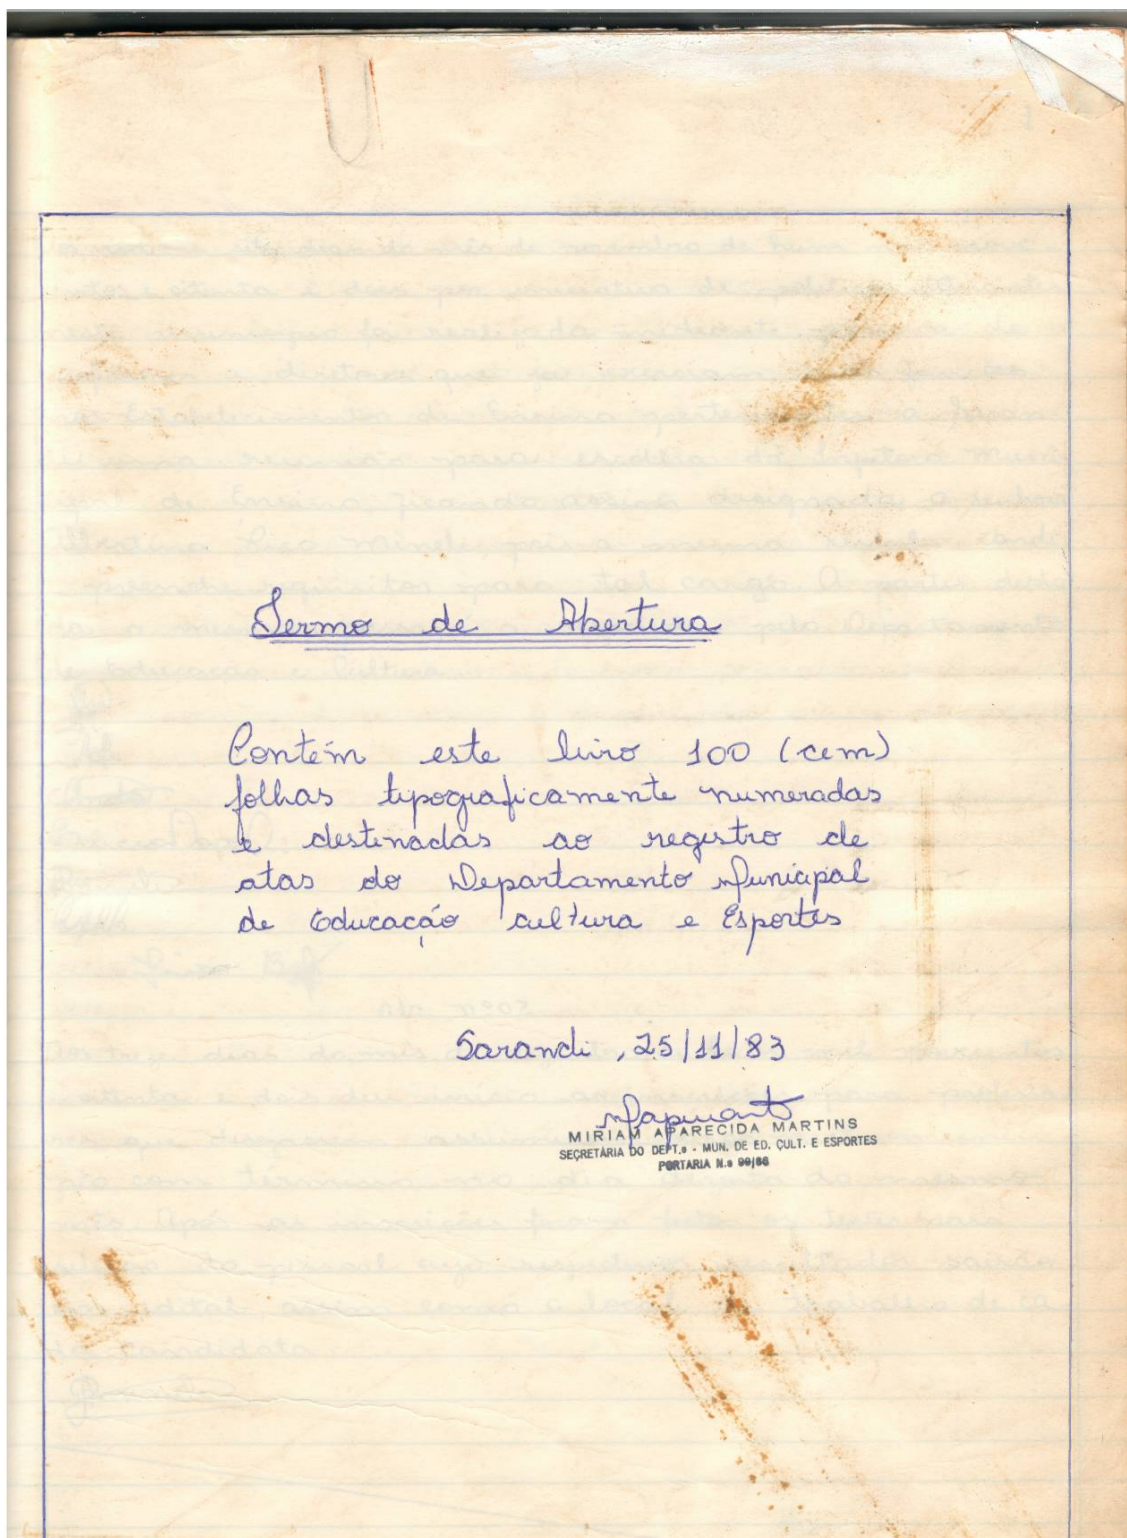 Termo de Abertura
Contém este livro 100 (cem)
folhas tipograficamente numeradas
e destinadas ao registro de
atas do Departamento Municipal
de Educação cultura e Esportes
Sarandi, 25/11/83
MIRIAM APARECIDA MARTINS
SECRETÁRIA DO DEPT.º - MUN. DE ED. CULT. E ESPORTES
PORTARIA N.º 99/86